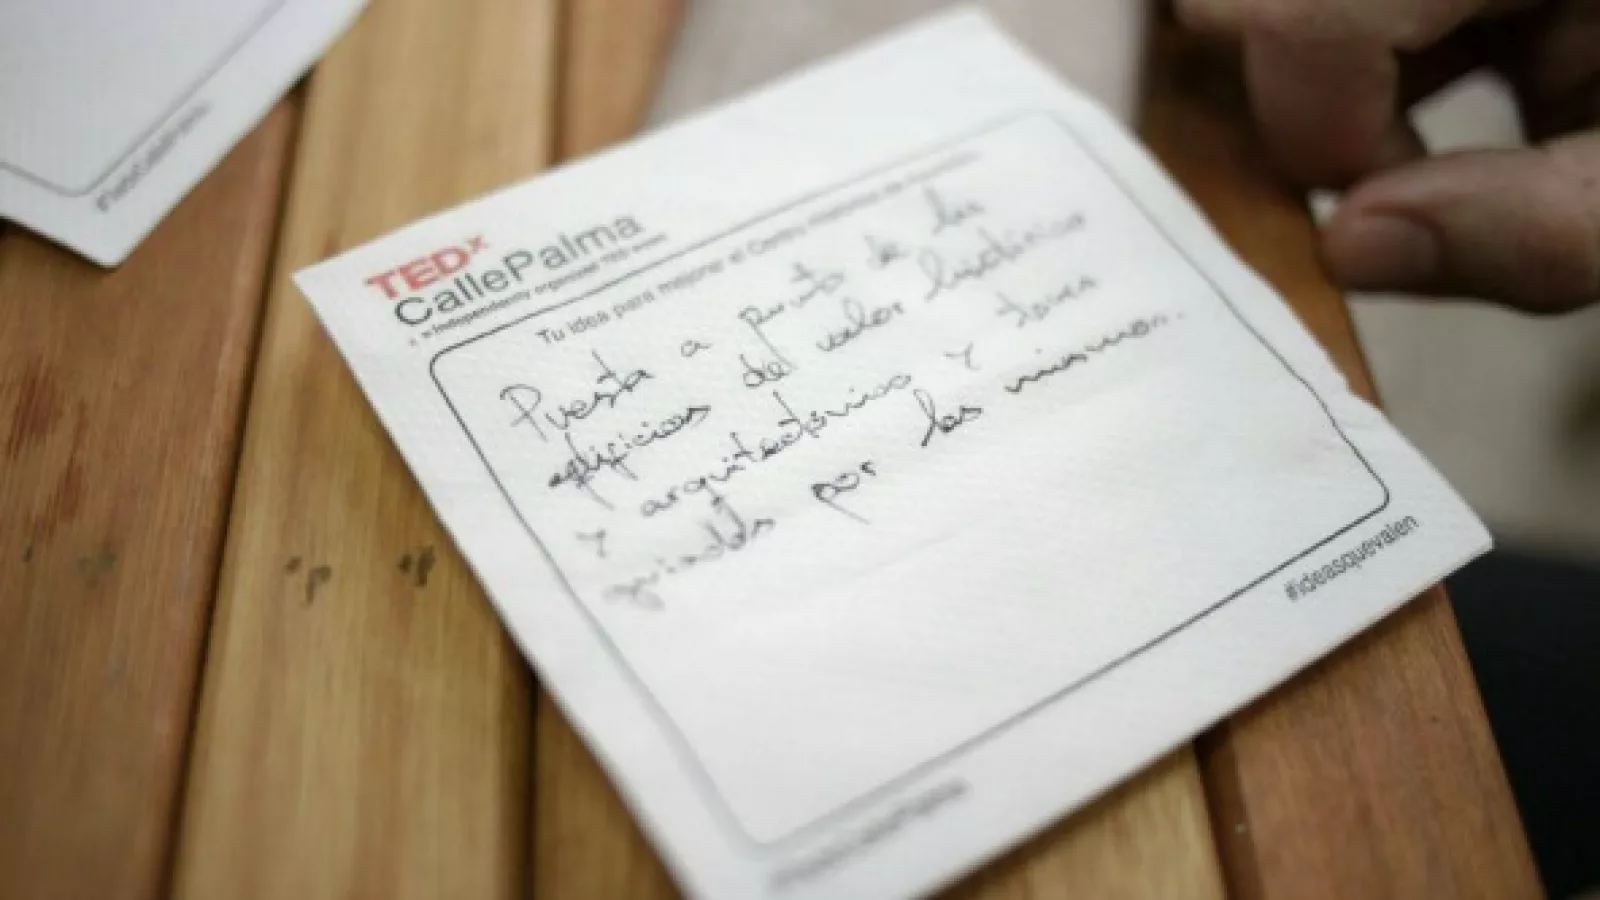 TEDx
CallePalma
x = independently organized TED event
Tu idea para mejorar el Centro Histórico de
Puesta a punto de los
edificios del valor histórico
Y arquitectónico Y tours
guiados por los mismos.
#ideasquevalen
#TedxCallePalma
#TedxCallePalma